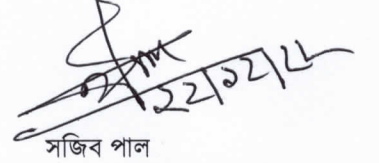 ২২/১২/২২
সজিব পাল